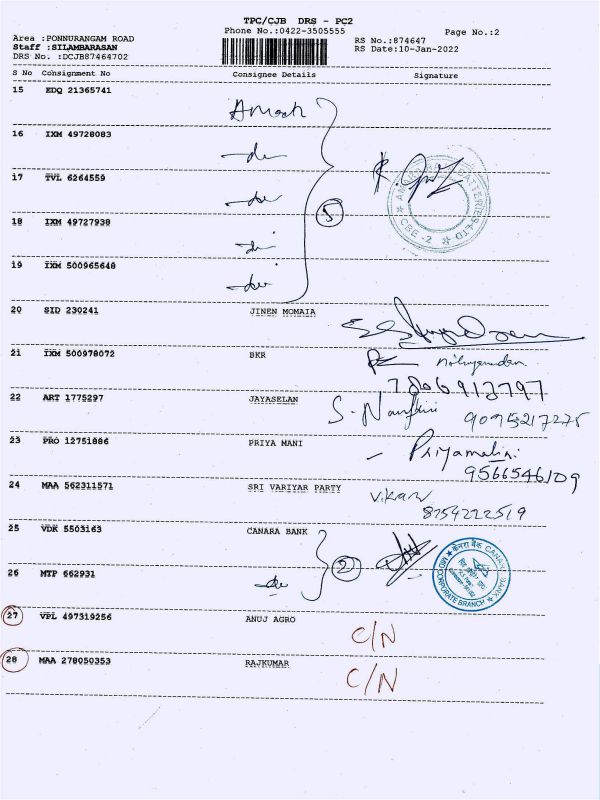 TPC/CJB DRS - PC2
Phone No.:0422-3505555
Page No.:2
Area :PONNURANGAM ROAD
RS No.:874647
Staff :SILAMBARASAN
RS Date:10-Jan-2022
DRS No. :DCJB87464702
S No Consignment No Consignee Details Signature
15 EDQ 21365741
16 IXM 49728083
17 TVL 6264559
18 IXM 49727938
19 IXM 500965648
5
BATTERIES LTD
CBE-2
20 SID 230241 JINEN MOMAIA
21 IXM 500978072 BKR
7806913797
22 ART 1775297 JAYASELAN
9095217275
23 PRO 12751886 PRIYA MANI
9566546109
24 MAA 562311571 SRI VARIYAR PARTY
8754222519
25 VDK 5503163 CANARA BANK
2
केनरा बैंक CANARA BANK
CORPORATE BRANCH
26 MTP 662931
27 VPL 497319256 ANUJ AGRO C/N
28 MAA 278050353 RAJKUMAR C/N